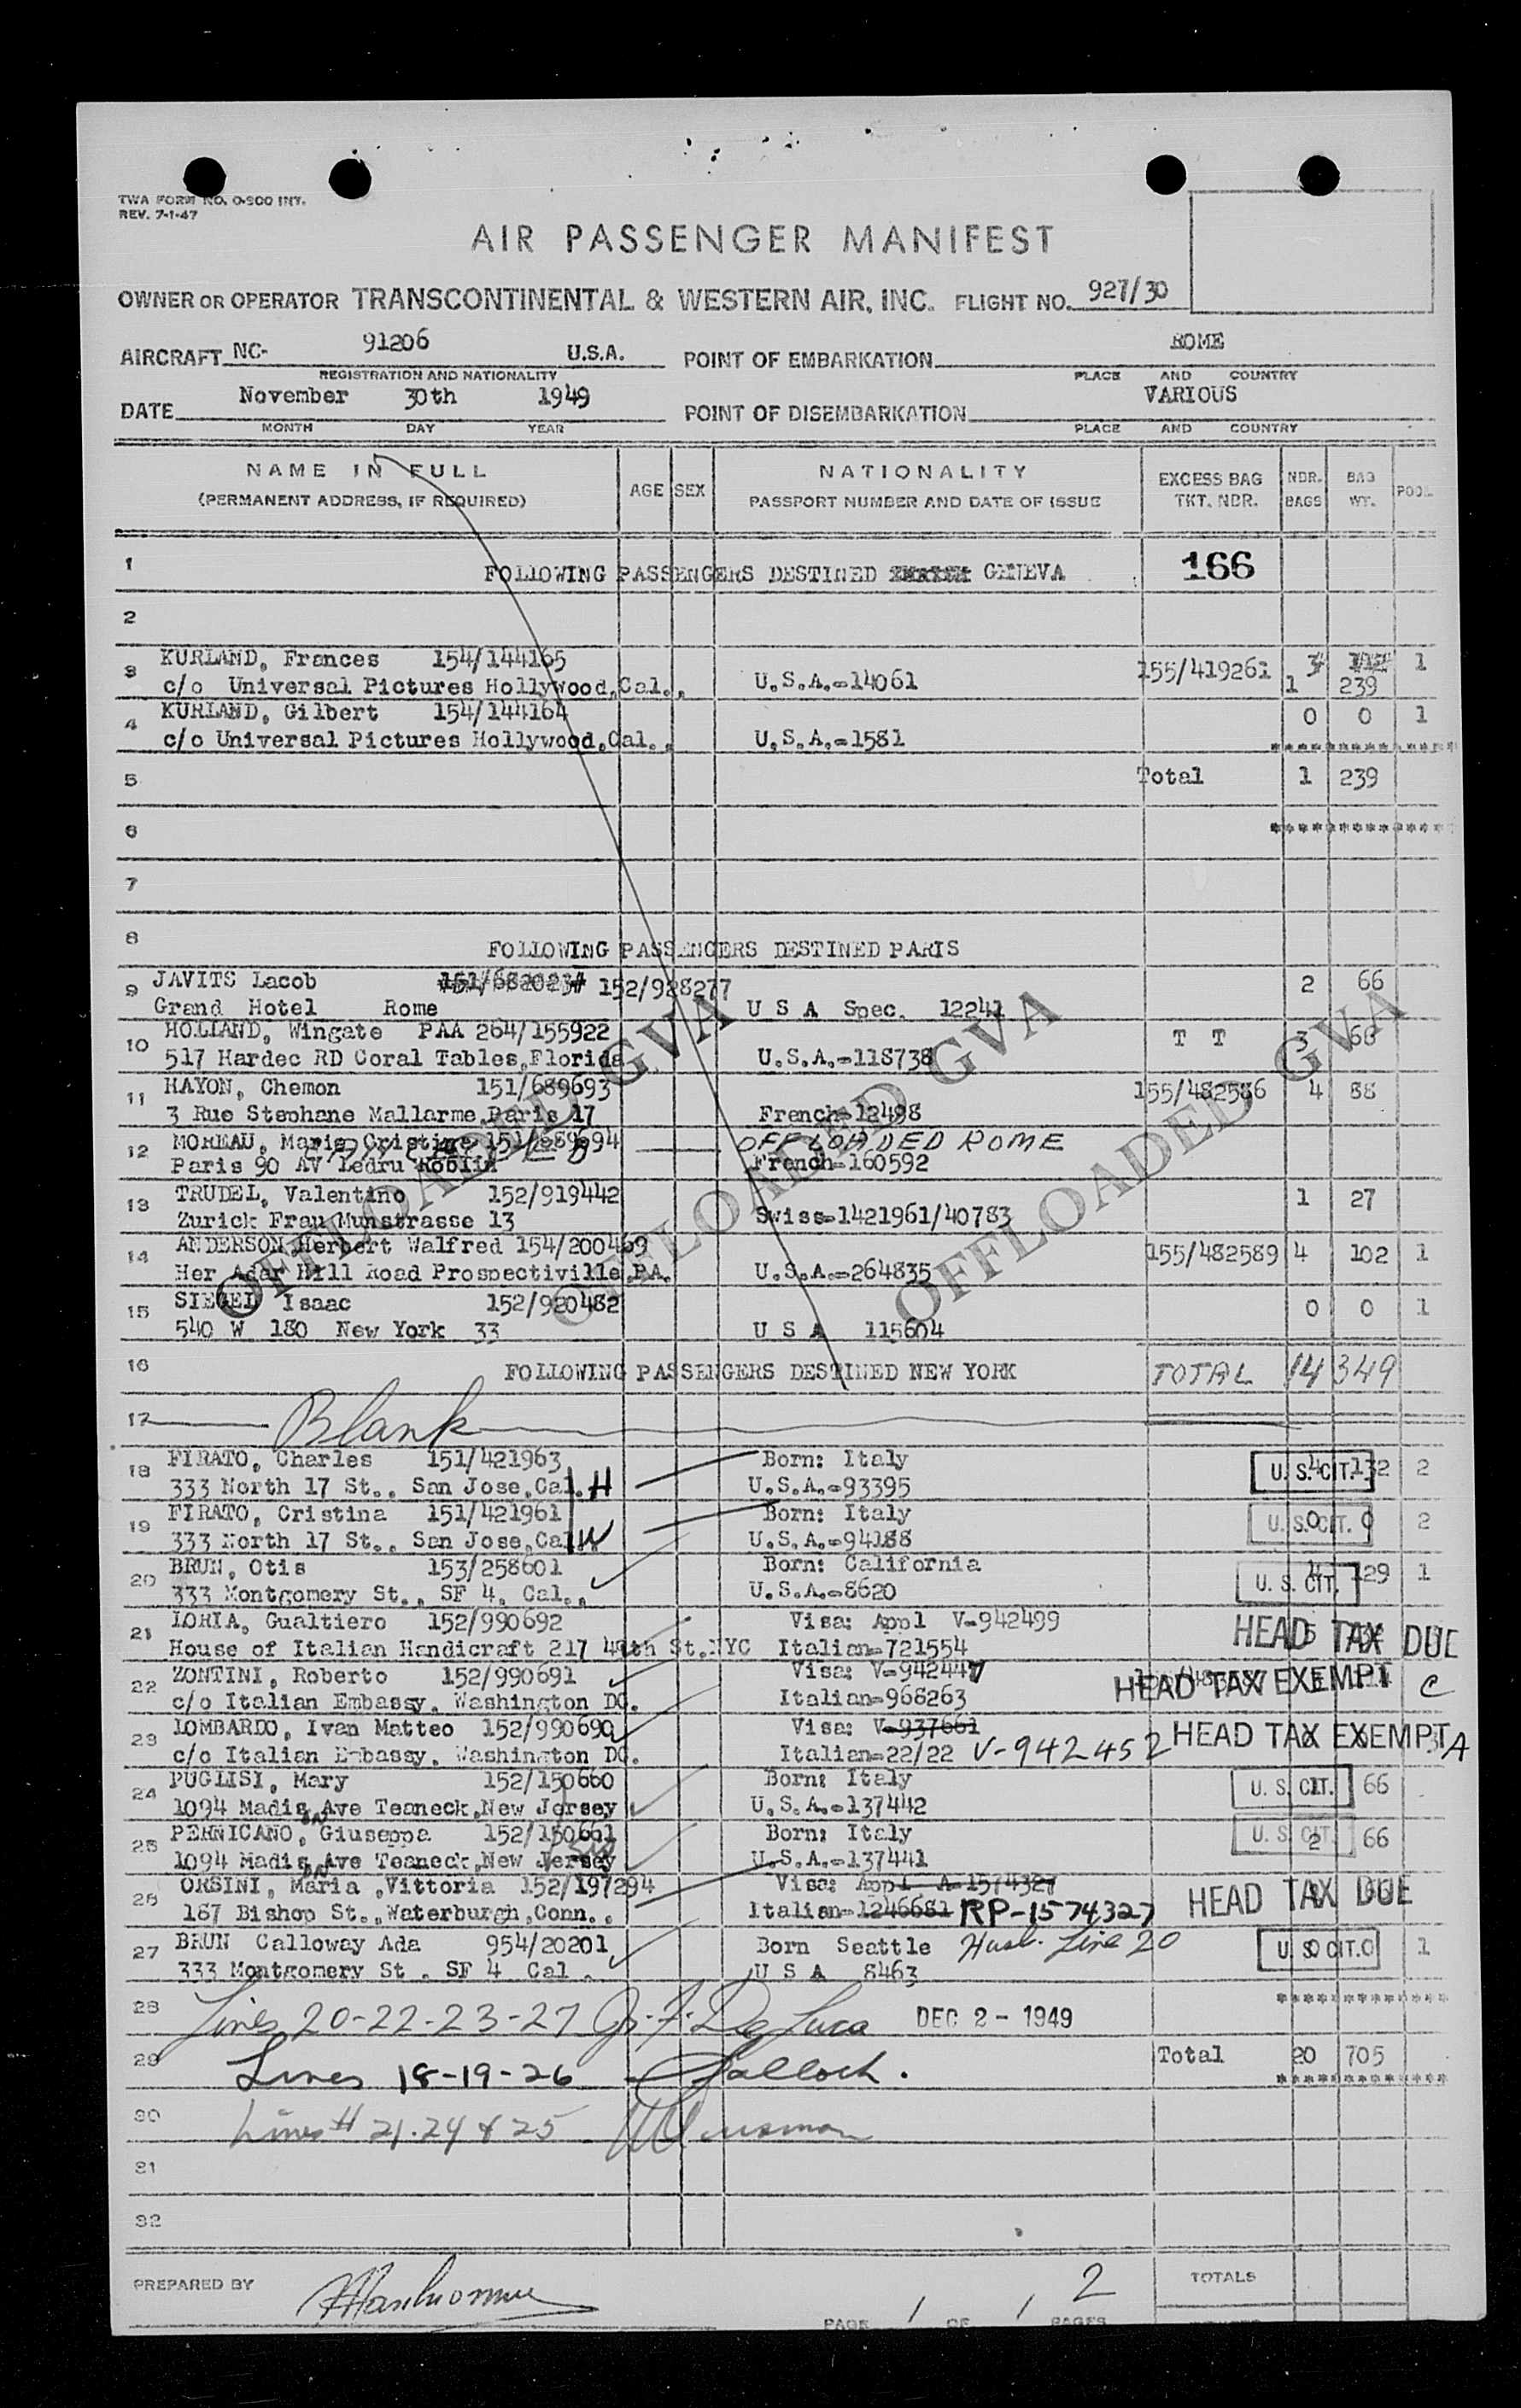 TWA FORM NO. O-900 INT.
REV. 7-1-47
AIR PASSENGER MANIFEST
OWNER OR OPERATOR TRANSCONTINENTAL & WESTERN AIR, INC. FLIGHT NO. 927/30
AIRCRAFT NC- 91206 U.S.A. POINT OF EMBARKATION ROME
REGISTRATION AND NATIONALITY PLACE AND COUNTRY
DATE November 30th 1949 POINT OF DISEMBARKATION VARIOUS
MONTH DAY YEAR PLACE AND COUNTRY
NAME IN FULL AGE SEX NATIONALITY EXCESS BAG NBR. BAG POOL
(PERMANENT ADDRESS, IF REQUIRED) PASSPORT NUMBER AND DATE OF ISSUE TKT. NBR. BAGS WT.
1 FOLLOWING PASSENGERS DESTINED GENEVA 166
2
3 KURLAND, Frances 154/144165 155/419261 3 112 1
c/o Universal Pictures Hollywood,Cal., U.S.A.-14061 1 239
4 KURLAND, Gilbert 154/144164 0 0 1
c/o Universal Pictures Hollywood,Cal., U.S.A.-1581
5 Total 1 239
6
7
8 FOLLOWING PASSENGERS DESTINED PARIS
9 JAVITS Lacob 151/682023 152/928277 2 66
Grand Hotel Rome U S A Spec. 12241
10 HOLLAND, Wingate PAA 264/155922 T T 3 66
517 Hardec RD Coral Tables,Florida U.S.A.-118738
11 HAYON, Chemon 151/689693 155/482586 4 88
3 Rue Stephane Mallarme,Paris 17 French-12498
12 MOREAU, Marie Cristine 151/689694 OFFLOADED ROME
Paris 90 AV Ledru Roblin French-160592
13 TRUDEL, Valentino 152/919442 1 27
Zurick Frau Munstrasse 13 Swiss-1421961/40783
14 ANDERSON Herbert Walfred 154/200469 155/482589 4 102 1
Her Adar Hill Road Prospectiville,PA. U.S.A.-264835
15 SIEGEL Isaac 152/920482 0 0 1
540 W 180 New York 33 U S A 115604
OFFLOADED GVA
OFFLOADED GVA
OFFLOADED GVA
16 FOLLOWING PASSENGERS DESTINED NEW YORK TOTAL 14 349
17 Blank
18 FIRATO, Charles 151/421963 Born: Italy U. S. CIT. 4 132 2
333 North 17 St., San Jose,Cal. H U.S.A.-93395
19 FIRATO, Cristina 151/421961 Born: Italy U. S. CIT. 0 0 2
333 North 17 St., San Jose,Cal. W U.S.A.-94188
20 BRUN, Otis 153/258601 Born: California U. S. CIT. 4 129 1
333 Montgomery St., SF 4, Cal., U.S.A.-8620
21 LORIA, Gualtiero 152/990692 Visa: Appl V-942499 HEAD TAX DUE
House of Italian Handicraft 217 49th St.NYC Italian-721554
22 ZONTINI, Roberto 152/990691 Visa: V-942447 HEAD TAX EXEMPT C
c/o Italian Embassy, Washington DC. Italian-968263
23 LOMBARDO, Ivan Matteo 152/990690 Visa: V-937661 HEAD TAX EXEMPT A
c/o Italian Embassy, Washington DC. Italian-22/22 V-942452
24 PUGLISI, Mary 152/150660 Born: Italy U. S. CIT. 66
1094 Madison Ave Teaneck,New Jersey U.S.A.-137442
25 PERNICANO, Giuseppa 152/150661 Born: Italy U. S. CIT. 2 66
1094 Madison Ave Teaneck,New Jersey U.S.A.-137441
26 ORSINI, Maria ,Vittoria 152/197294 Visa: Appl A-1574327 HEAD TAX DUE
187 Bishop St.,Waterburgh,Conn., Italian-1246681 RP-1574327
27 BRUN Calloway Ada 954/20201 Born Seattle Husb. Line 20 U. S. CIT. 0 0 1
333 Montgomery St . SF 4 Cal . U S A 8463
28 Lines 20-22-23-27 J. F. De Luca DEC 2 - 1949
29 Lines 18-19-26 Total 20 705
30 Lines # 21.24 & 25
31
32
PREPARED BY 2 TOTALS
PAGE 1 OF 1 PAGES